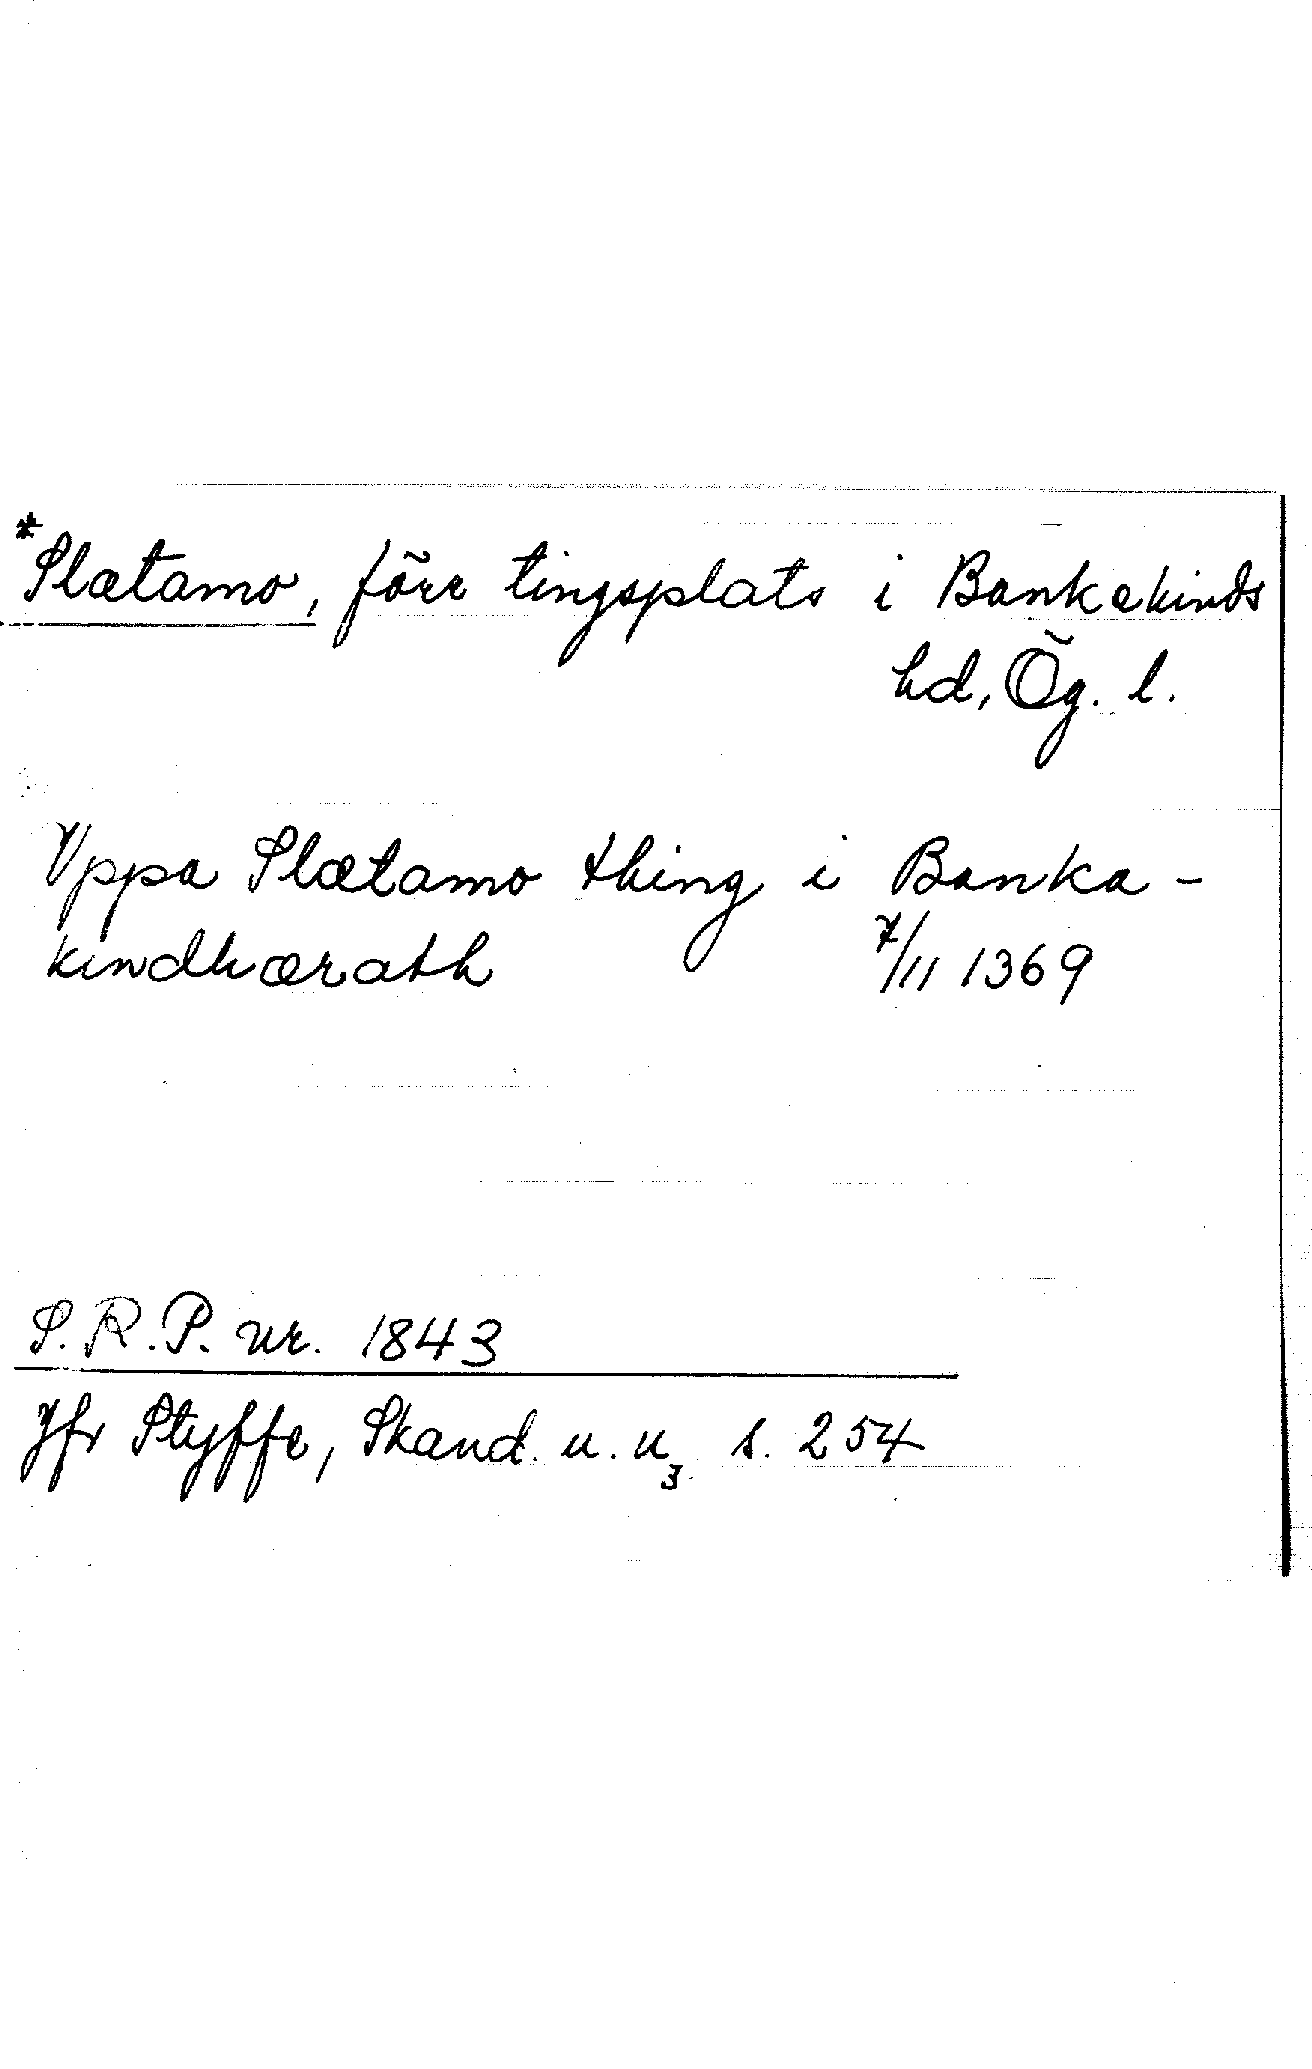 *Slætamo, förr tingsplats i Bankekinds
hd, Ög. l.
Vppa Slætamo thing i Banka-
kindhærath 7/11 1369
S.R.P. nr. 1843
Jfr Styffe, Skand. u. u₃ s. 254